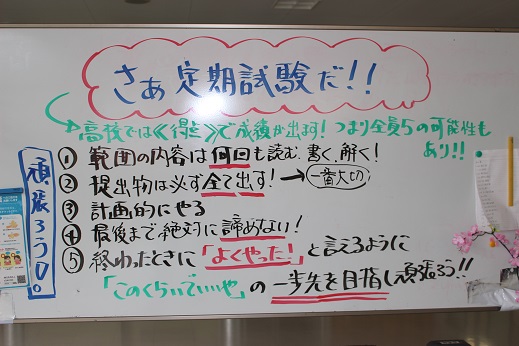 さぁ 定期試験だ!!
高校では《得点》で成績が出ます! つまり全員5の可能性も
あり!!
頑張ろう。
① 範囲の内容は何回も読む、書く、解く!
② 提出物は必ず全て出す! → 一番大切
③ 計画的にやる
④ 最後まで絶対に諦めない!
⑤ 終わったときに「よくやった!」と言えるように
「このくらいでいいや」の一歩先を目指し頑張ろう!!